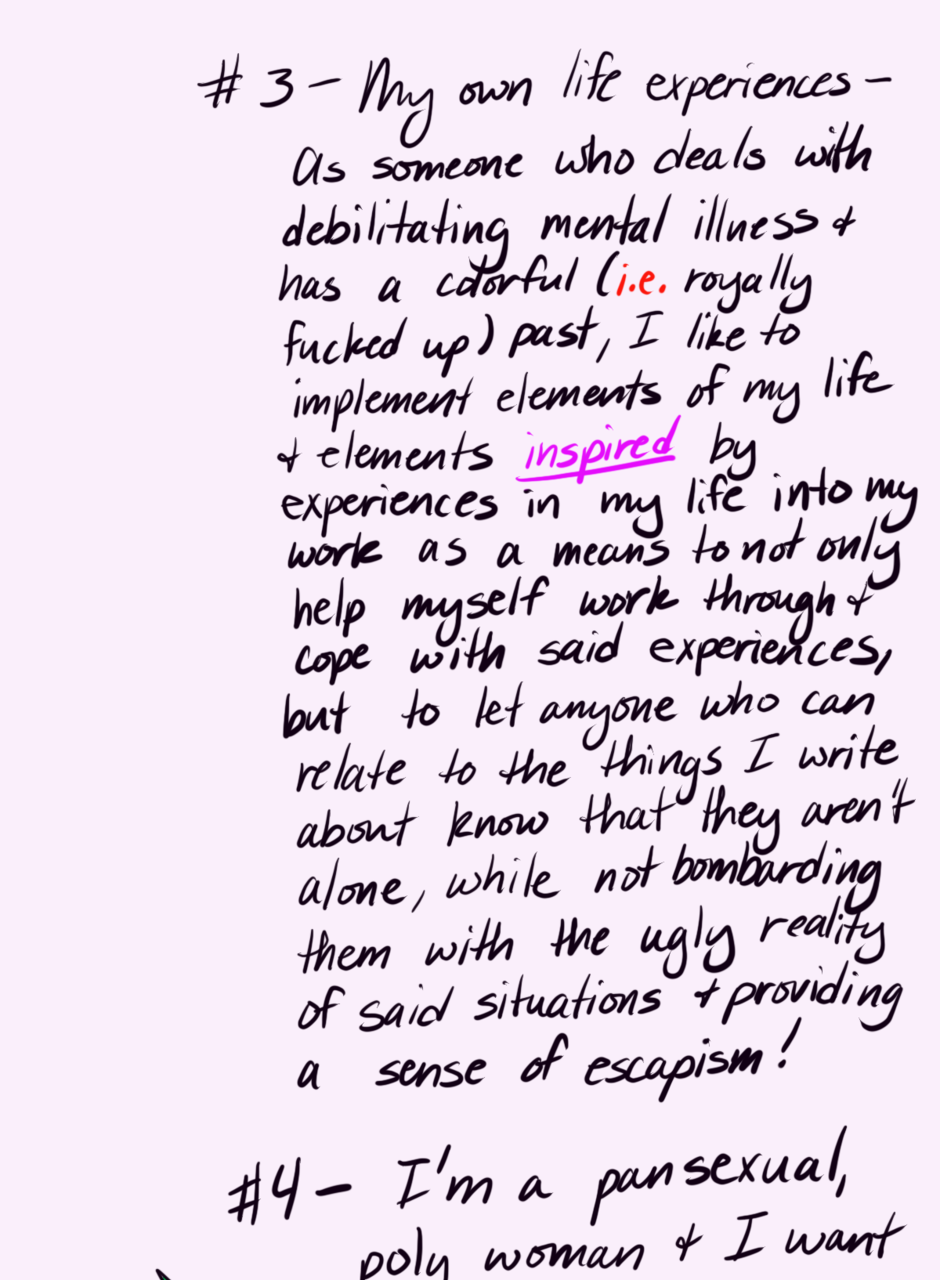 #3 - My own life experiences -
As someone who deals with
debilitating mental illness &
has a colorful (i.e. royally
fucked up) past, I like to
implement elements of my life
& elements inspired by
experiences in my life into my
work as a means to not only
help myself work through &
cope with said experiences,
but to let anyone who can
relate to the things I write
about know that they aren't
alone, while not bombarding
them with the ugly reality
of said situations & providing
a sense of escapism!
#4 - I'm a pansexual,
poly woman & I want